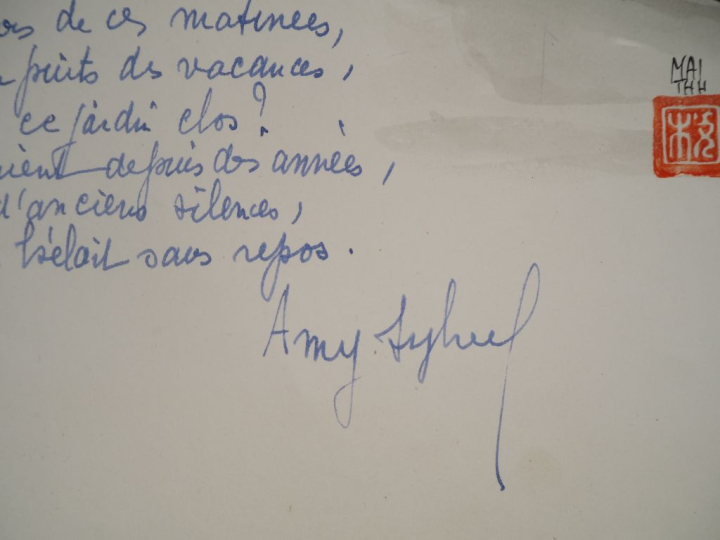 de ces matinées,
puits des vacances,
ce jardin clos?
depuis des années,
d'anciens silences,
sans repos.
Amy Sylvel
MAI
THH